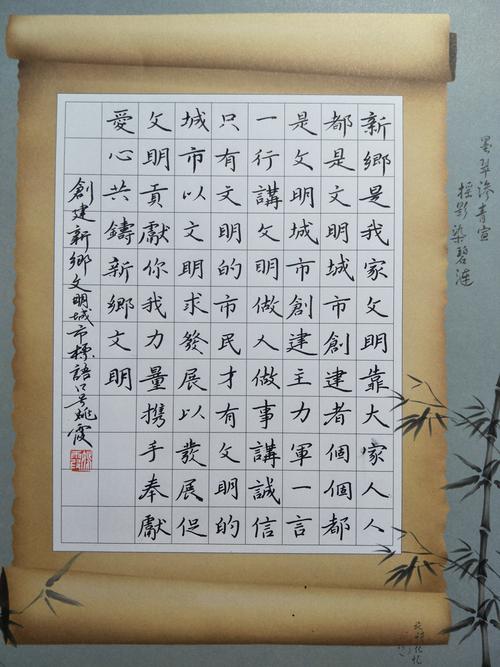 新鄉是我家文明靠大家人人
都是文明城市創建者個個都
是文明城市創建主力軍一言
一行講文明做人做事講誠信
只有文明的市民才有文明的
城市以文明求發展以發展促
文明貢獻你我力量携手奉獻
愛心共鑄新鄉文明
創建新鄉文明城市標語口号姚霞
墨翠滲青宣
摇影染碧漣